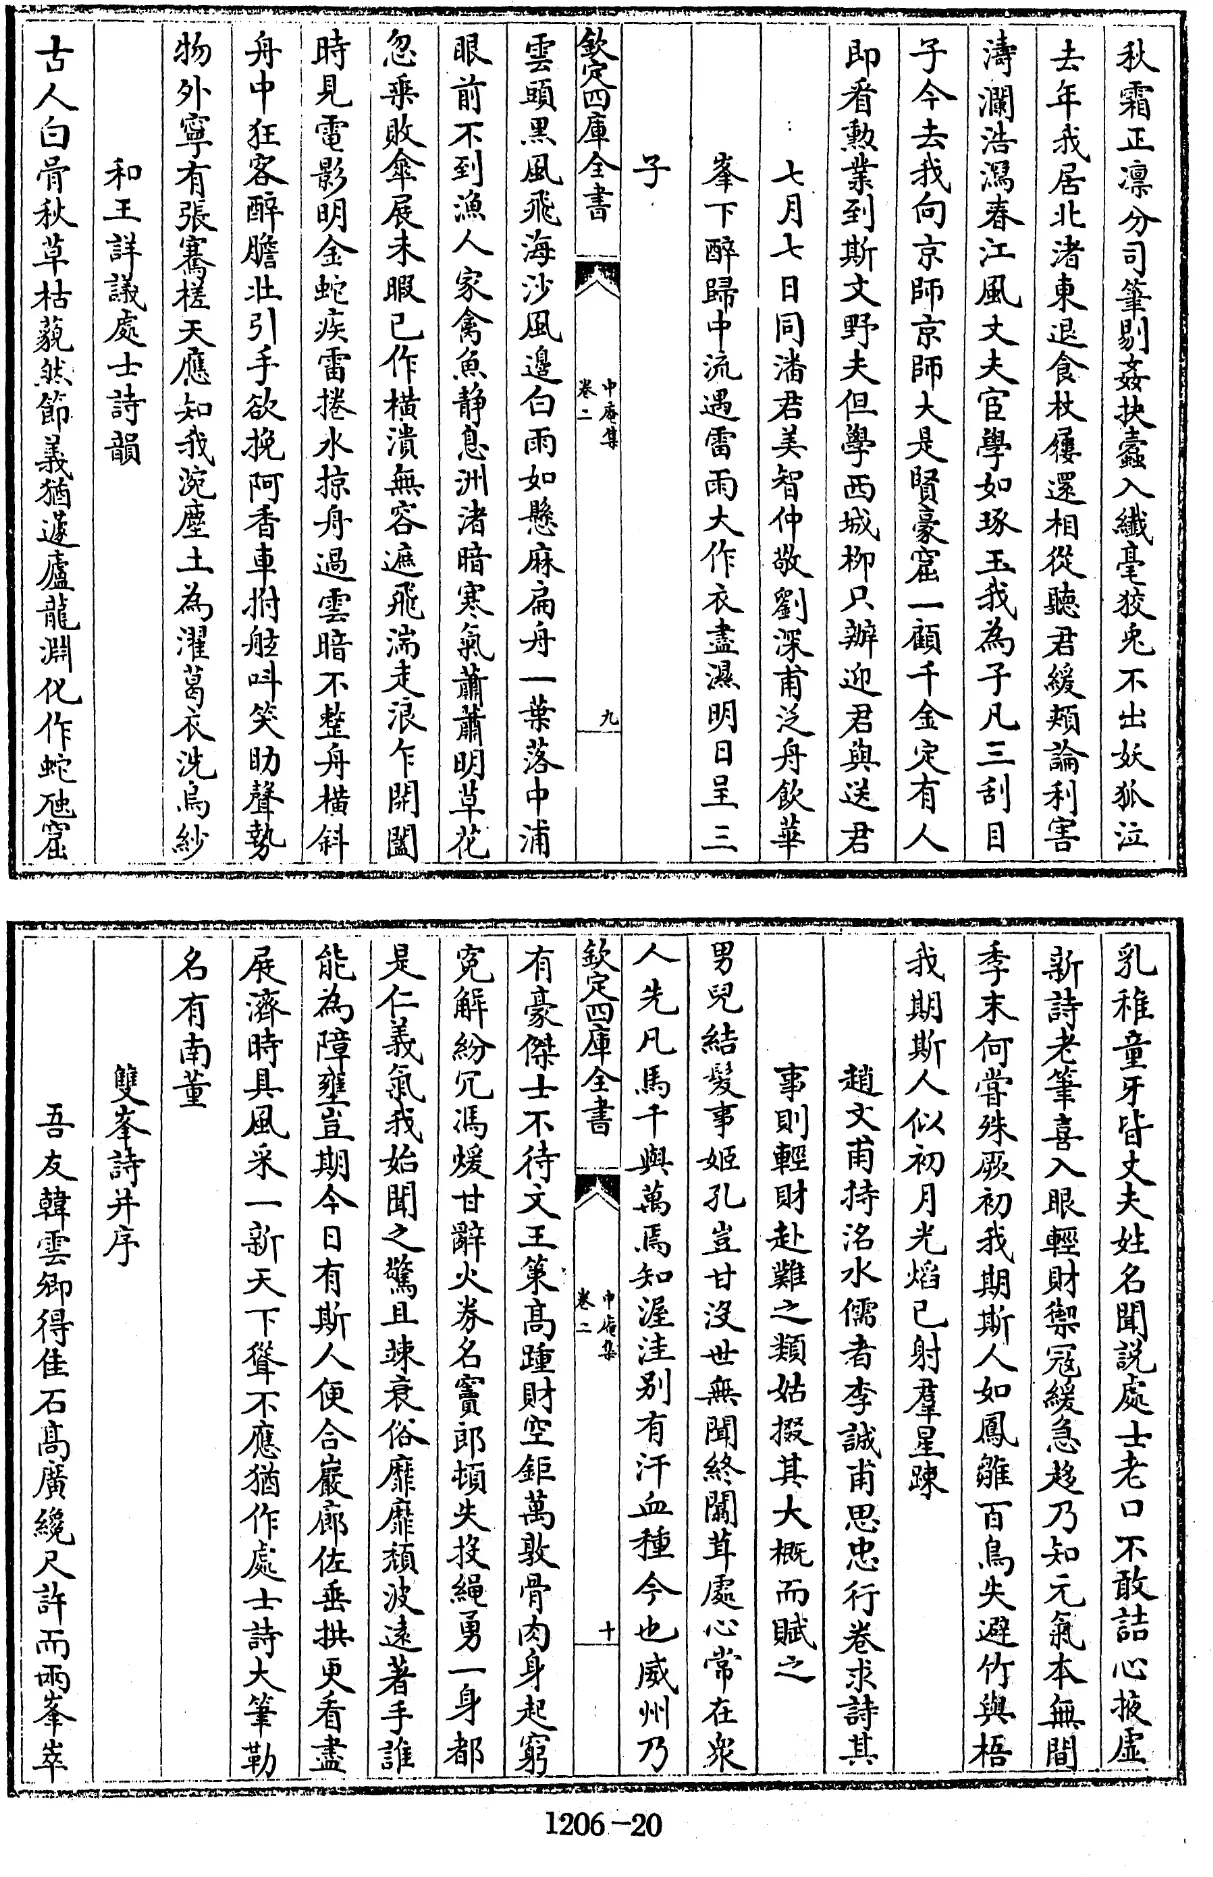 秋霜正凛分司筆剔姦抉蠹入纖毫狡兎不出妖狐泣
去年我居北渚東退食杖屨還相從聽君緩頰論利害
濤瀾浩瀉春江風丈夫宦學如琢玉我為子凡三刮目
子今去我向京師京師大是賢豪窟一顧千金定有人
即看勲業到斯文野夫但學西城栁只辦迎君與送君
七月七日同潘君美智仲敬劉深甫泛舟飲華
峯下醉歸中流遇雷雨大作衣盡濕明日呈三
子
欽定四庫全書
中庵集
卷二
九
雲頭黒風飛海沙風邉白雨如懸麻扁舟一葉落中浦
眼前不到漁人家禽魚静息洲渚暗寒氣蕭蕭明草花
忽乘敗傘展未暇已作横潰無容遮飛湍走浪乍開闔
時見電影明金蛇疾雷捲水掠舟過雲暗不整舟横斜
舟中狂客醉膽壯引手欲挽阿香車拊舷呌笑助聲勢
物外寧有張騫槎天應知我涴塵土為濯葛衣洗烏紗
和王詳議處士詩韻
古人白骨秋草枯藐然節義猶蘧廬龍淵化作蛇虺窟
乳稚童牙皆丈夫姓名聞説處士老口不敢詰心掖虛
新詩老筆喜入眼輕財禦冦緩急趍乃知元氣本無間
季末何甞殊厥初我期斯人如鳳雛百鳥失避竹與梧
我期斯人似初月光熖已射羣星踈
趙文甫持洺水儒者李誠甫思忠行卷求詩其
事則輕財赴難之類姑掇其大概而賦之
男兒結髪事姬孔豈甘沒世無聞終闒茸處心常在衆
人先凡馬千與萬焉知渥洼别有汗血種今也威州乃
欽定四庫全書
中庵集
卷二
十
有豪傑士不待文王䇿髙踵財空鉅萬敦骨肉身起窮
寃解紛冗馮煖甘辭火券名竇郎頓失投繩勇一身都
是仁義氣我始聞之驚且竦衰俗靡靡頽波逺著手誰
能為障壅豈期今日有斯人便合巖廊佐垂拱更看盡
展濟時具風采一新天下聳不應猶作處士詩大筆勒
名有南董
雙峯詩并序
吾友韓雲卿得佳石髙廣纔尺許而兩峯崒
1206-20